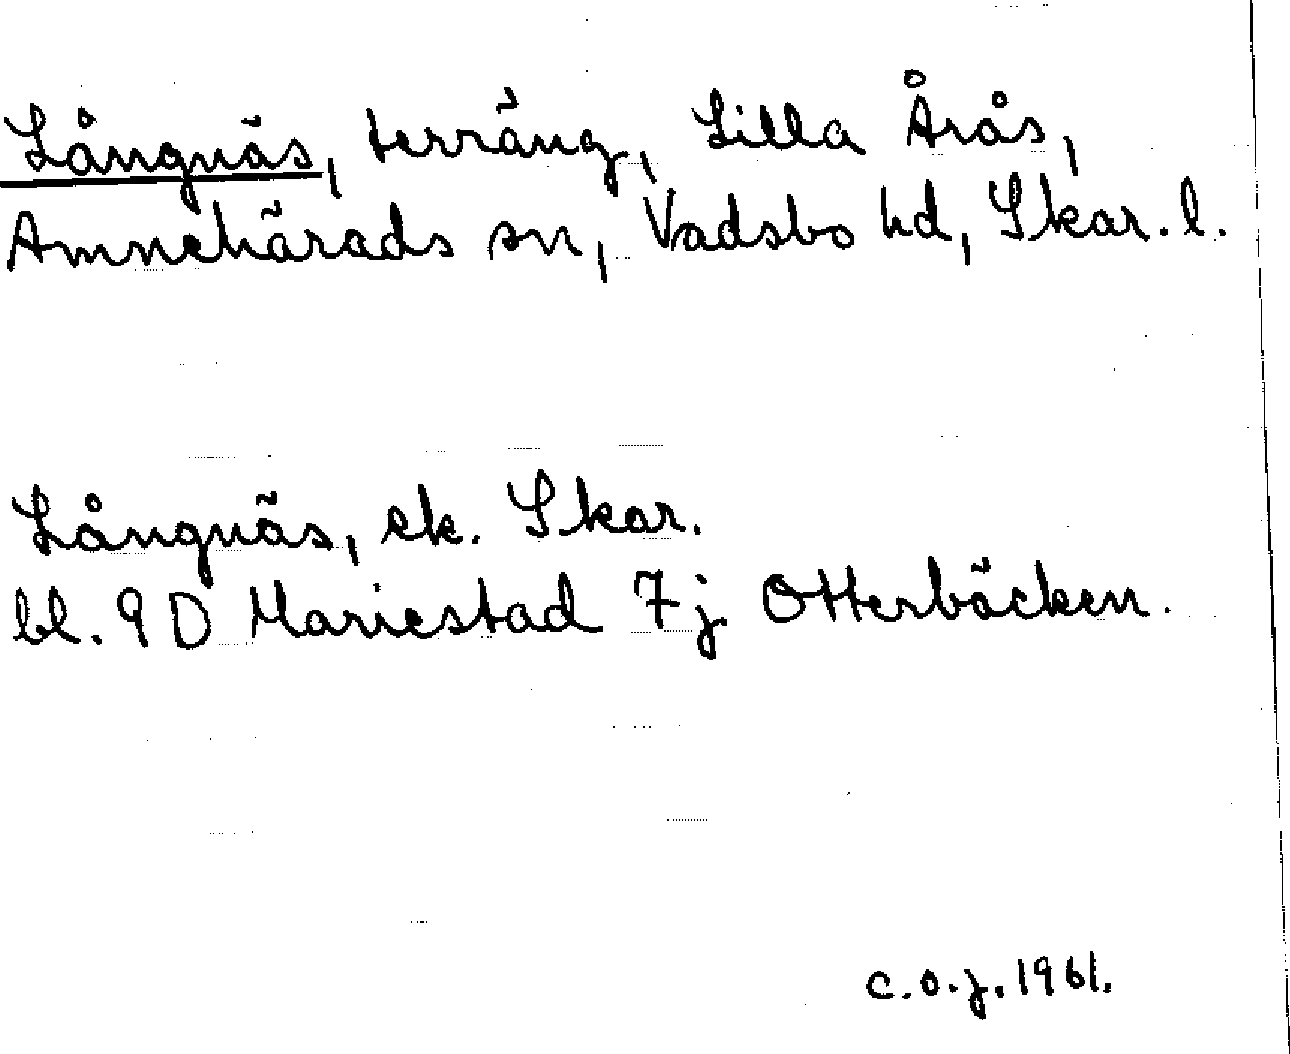 Långnäs, terräng, Lilla Årås,
Amnehärads sn, Vadsbo hd, Skar. l.
Långnäs, ek. Skar.
bl. 9 D Mariestad 7 j Otterbäcken.
c.o.j. 1961.